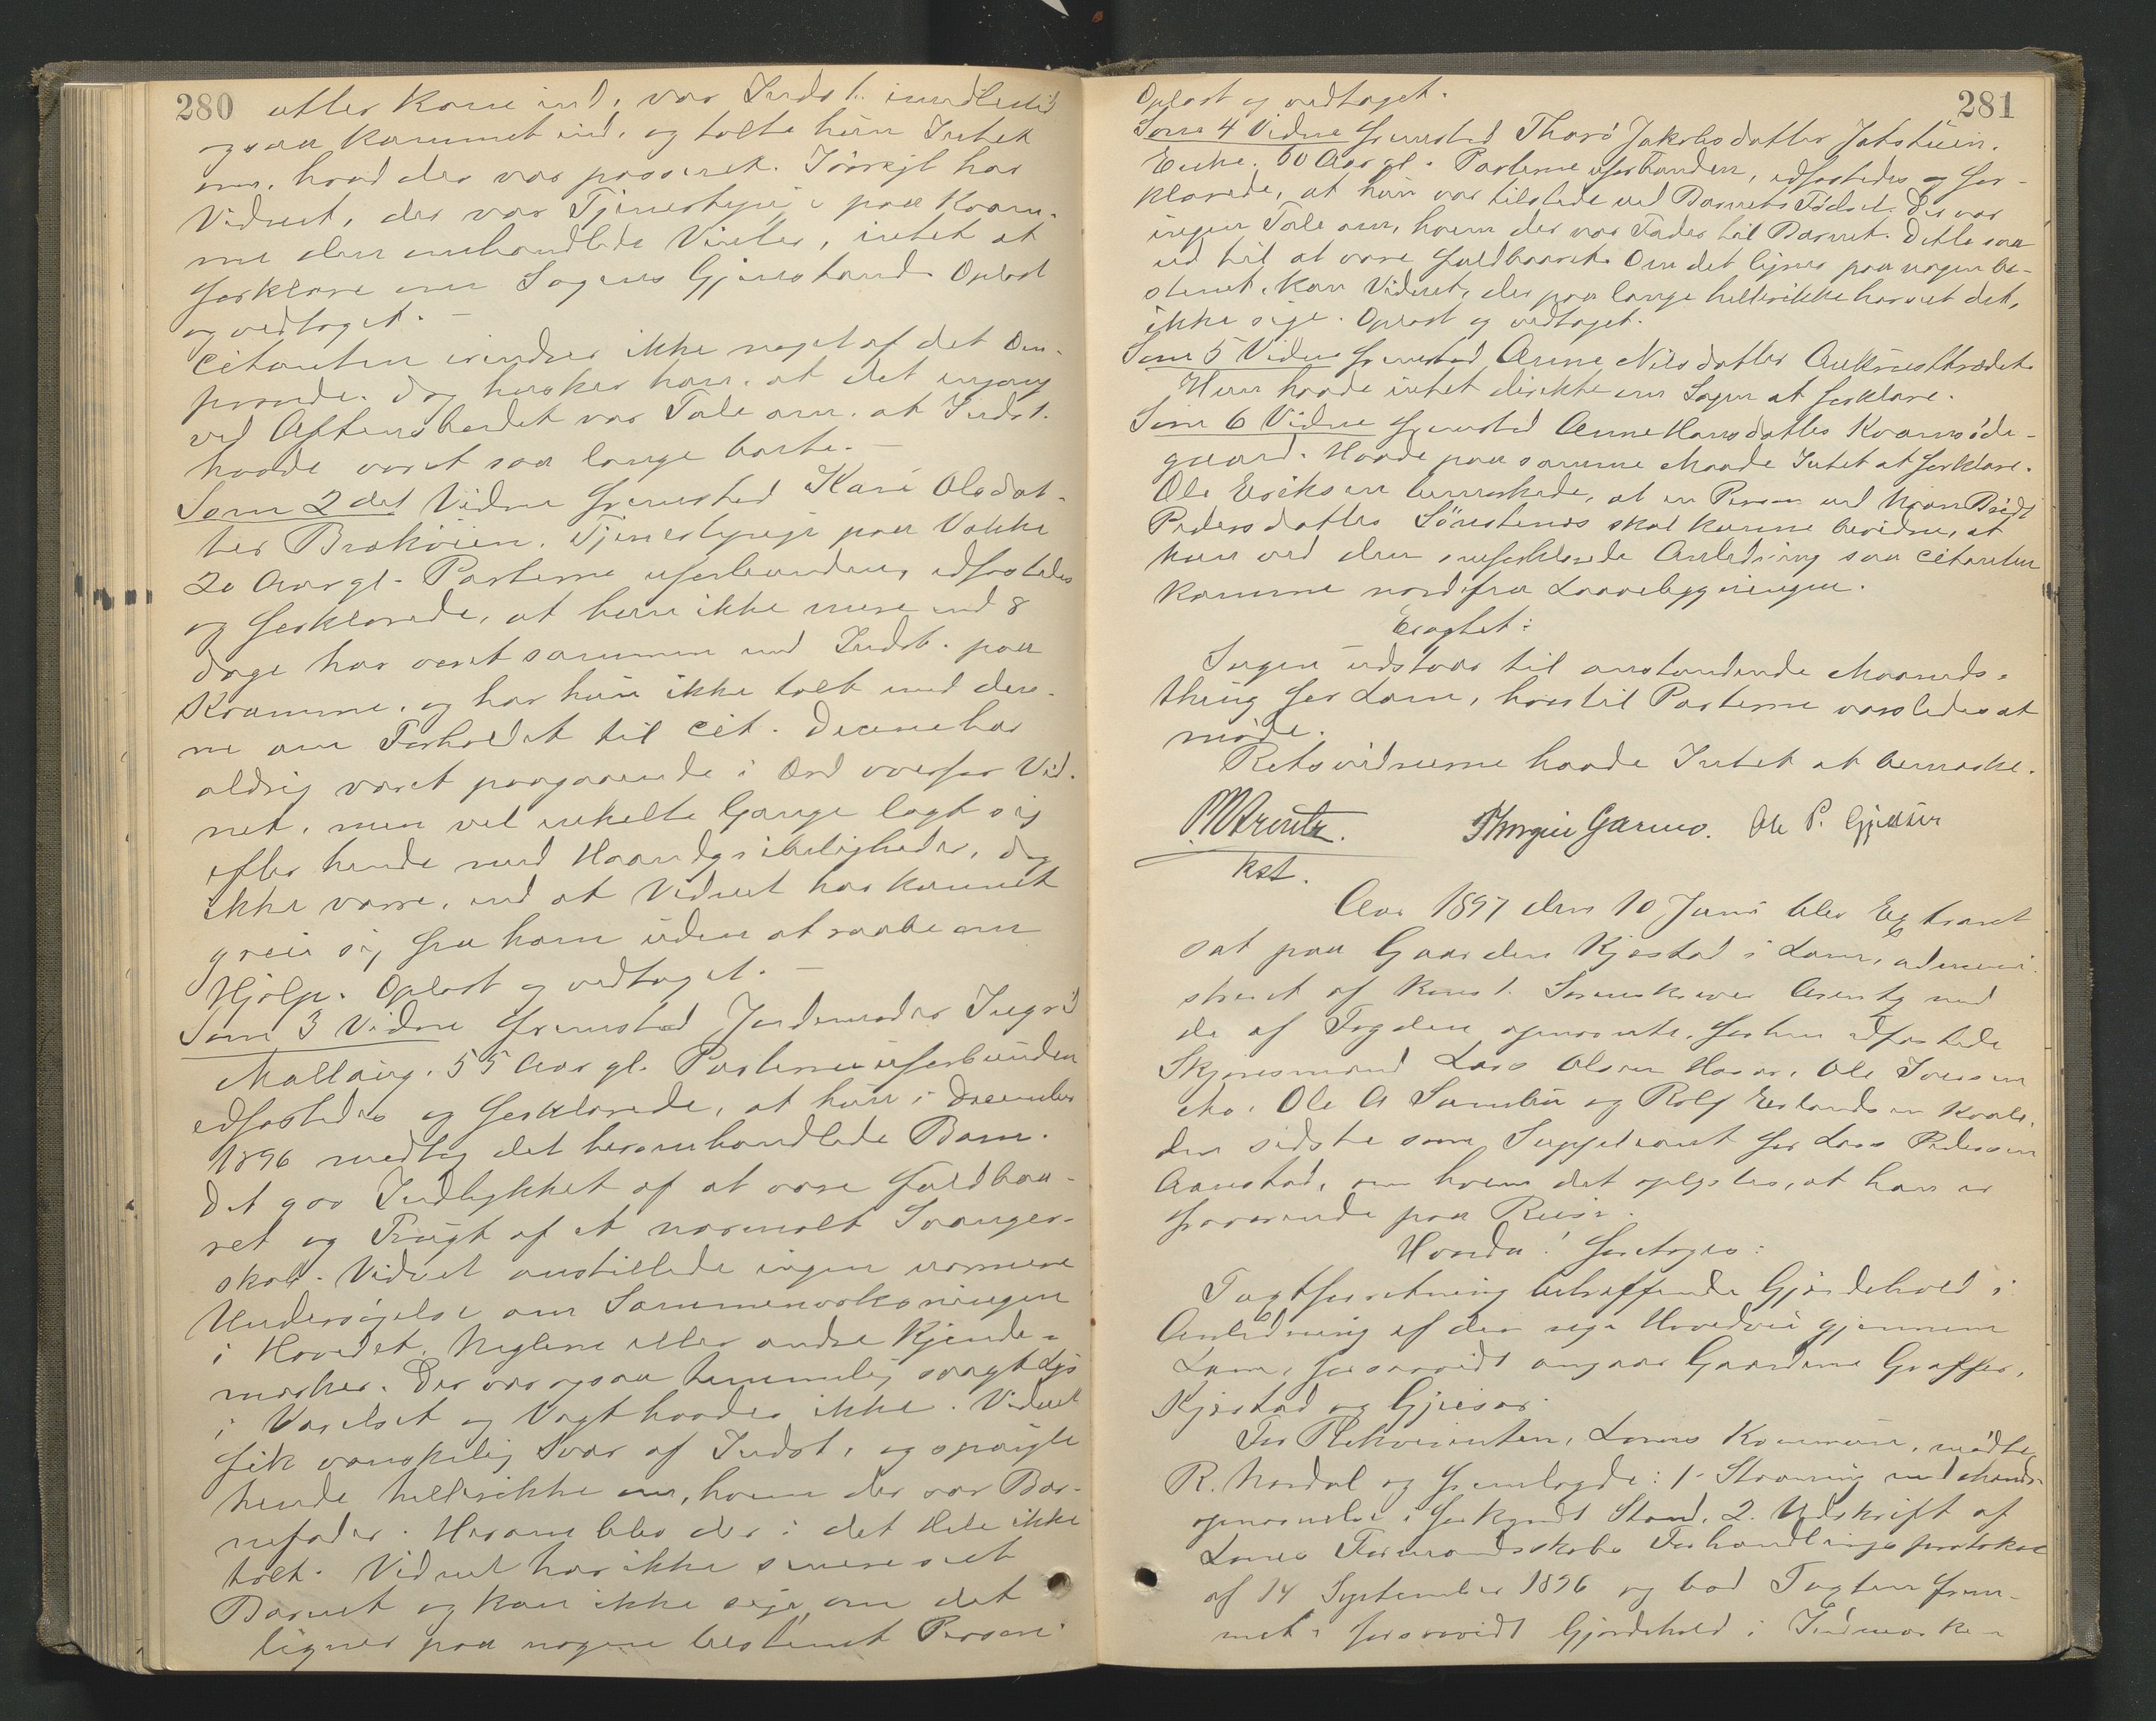 280
atter kom ind, var Indst. imidlertid
ogsaa kommet ind, og talte hun Intet
om, hvad der var passeret. Iøvrigt har
Vidnet, der var Tjenestepige paa Kvam-
me den omhandlede Vinter, intet at
forklare om Sagens Gjenstand. Oplæst
og vedtaget. —
Citanten erindrer ikke noget af det Om-
provede. Dog husker han, at det engang
ved Aftensbordet var Tale om, at Indst.
havde været saa længe borte. —
Som 2det Vidne fremstod Kari Olsdat-
ter Brækøien, Tjenestepige paa Vakke
20 Aar gl. Parterne uforbunden, edfæstedes
og forklarede, at hun ikke mere end 8
Dage har været sammen med Indst. paa
Kvamme, og har hun ikke talt med den-
ne om Forholdet til Cit. Denne har
aldrig været paagaaende i Ord overfor Vid-
net, men vel enkelte Gange lagt sig
efter hende med Haandgribeligheder, dog
ikke værre, end at Vidnet har kunnet
greie sig fra ham uden at raabe om
Hjælp. Oplæst og vedtaget. —
Som 3 Vidne fremstod Jordemoder Ingrid
Malling, 55 Aar gl. Parterne uforbunden
edfæstedes og forklarede, at hun i December
1896 modtog det heromhandlede Barn.
Det gav Indtrykket af at være fuldbaa-
ret og Frugt af et normalt Svanger-
skab. Vidnet anstillede ingen nærmere
Undersøgelse om Sammenvoksningen
i Hovedet, Neglene eller andre Kjende-
mærker. Der var ogsaa temmelig svagt Lys
i Værelset og Vægt havdes ikke. Vidnet
fik vanskelig Svar af Indst. og spurgte
hende hellerikke om, hvem der var Bar-
nefader. Herom blev der i det Hele ikke
talt. Vidnet har ikke senere seet
Barnet og kan ikke sige, om det
ligner paa nogen bestemt Person.
281
Oplæst og vedtaget.
Som 4 Vidne fremstod Tharø Jakobsdatter Jotstuen.
Enke. 60 Aar gl. Parterne uforbunden, edfæstedes og for-
klarede, at hun var tilstede ved Barnets Fødsel. Der var
ingen Tale om, hvem der var Fader til Barnet. Dette saa
ud til at være fuldbaaret. Om det ligner paa nogen be-
stemt, kan Vidnet, der paa længe hellerikke har seet det,
ikke sige. Oplæst og vedtaget.
Som 5 Vidne fremstod Anne Nilsdatter
Hun havde intet direkte om Sagen at forklare.
Som 6 Vidne fremstod Anne Hansdatter Kvamsøde-
gaard. Havde paa samme Maade Intet at forklare.
Ole Eriksen bemærkede, at en Person ved Navn
Pedersdatter skal kunne bevidne, at
hun ved den omforklarede Anledning saa Citanten
komme nordifra Laavebygningen.
Eragtet:
Sagen udstaar til anstundende Maaneds-
thing for Lom, hvortil Parterne varsledes at
møde.
Retsvidnerne havde Intet at bemærke.
Arentz. Thorgeir Garmo. Ole P. Gjeilur
kst.
Aar 1897 den 10 Juni blev Extraret
sat paa Gaarden Kjæstad i Lom, admini-
streret af konst. Sorenskriver Arentz med
de af Fogden opnævnte, forhen edfæstede
Skjønsmænd Lars Olsen Hoser, Ole Iversen
Mo, Ole A Sandbu og Rolf Erlandsen Kvale,
den sidste som Suppleant for Lars Pedersen
Aanstad, om hvem det oplystes, at han er
fraværende paa Reise.
Hvorda! foretoges:
Taxtforretning betræffende Gjærdehold i
Anledning af den nye Hovedvei gjennem
Lom, forsaavidt angaar Gaardene Graffer,
Kjæstad og Gjeisar.
For Rekvirenten, Loms Kommune, mødte
R. Nordal og fremlagde: 1. Stævning med Mands-
opnævnelse i forkyndt Stand, 2. Udskrift af
Loms Formandskabs Forhandlingsprotokol
af 14 September 1896 og bad Taxten frem-
met, forsaavidt Gjærdehold i Indmarken